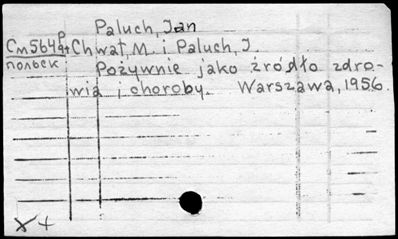 Paluch, Jan
Cm564gp + Chwat, M. i Paluch, J.
польск Pożywnie jako źródło zdro-
wia i choroby. Warszawa, 1956.
X4